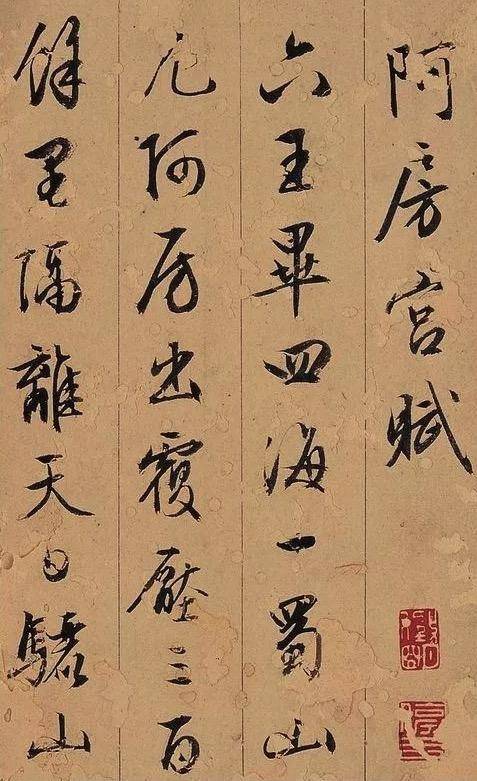 阿房宫賦
六王畢四海一蜀山
兀阿房出覆壓三百
餘里隔離天日驪山